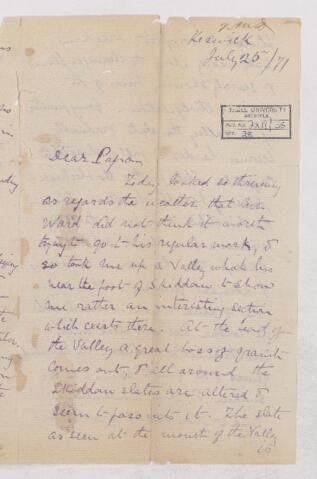 G.M.D
Keswick
July 25/71
McGILL UNIVERSITY
ARCHIVES
ACC. NO.
REF.
Dear Papa
Today looked so threatening
as regards the weather that
Ward did not think it worth
trying to go to his regular work, &
so took me up a Valley which lies
near the foot of Skiddaw to show
me rather an interesting section
which exists there. At the head of
the Valley a great boss of granite
comes out, & all around the
Skiddaw slates are altered &
seem to pass into it. The slate
as seen at the mouth of the Valley
is